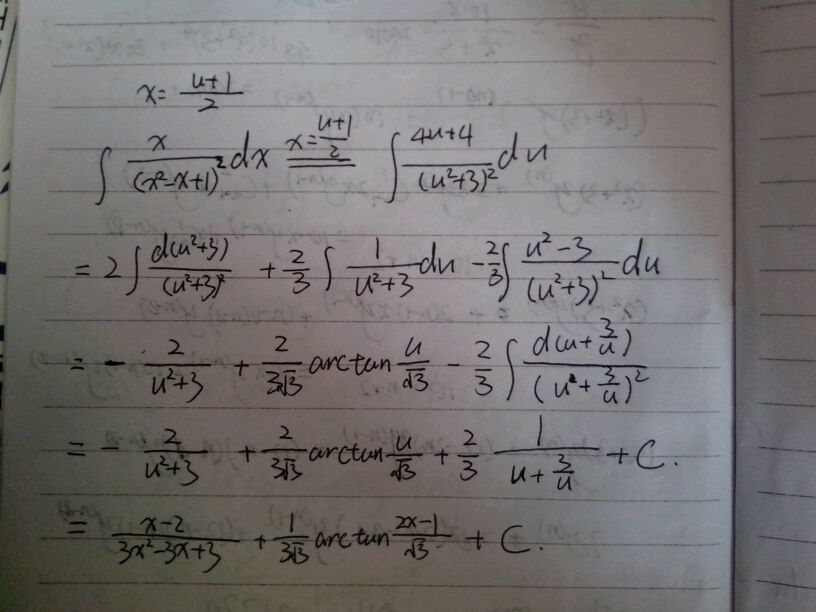 x = \frac{u+1}{2}
\int \frac{x}{(x^2-x+1)^2} dx \xlongequal{x=\frac{u+1}{2}} \int \frac{4u+4}{(u^2+3)^2} du
= 2 \int \frac{d(u^2+3)}{(u^2+3)^2} + \frac{2}{3} \int \frac{1}{u^2+3} du - \frac{2}{3} \int \frac{u^2-3}{(u^2+3)^2} du
= - \frac{2}{u^2+3} + \frac{2}{3\sqrt{3}} arctan \frac{u}{\sqrt{3}} - \frac{2}{3} \int \frac{d(u+\frac{3}{u})}{(u+\frac{3}{u})^2}
= - \frac{2}{u^2+3} + \frac{2}{3\sqrt{3}} arctan \frac{u}{\sqrt{3}} + \frac{2}{3} \frac{1}{u+\frac{3}{u}} + C.
= \frac{x-2}{3x^2-3x+3} + \frac{1}{3\sqrt{3}} arctan \frac{2x-1}{\sqrt{3}} + C.